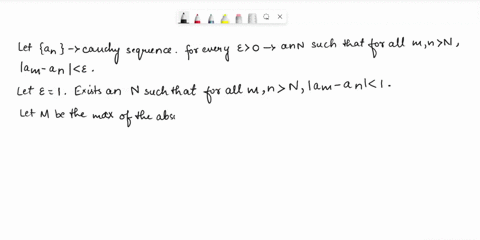 Let {an} → cauchy sequence. for every ε>0 → an N such that for all m,n>N,
|am-an|<ε.
Let ε=1. Exists an N such that for all m,n>N, |am-an|<1.
Let M be the max of the abs